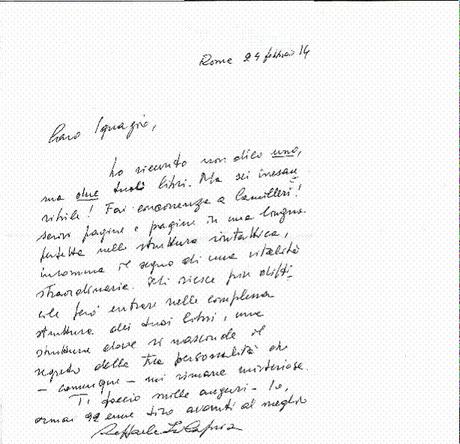 Roma 24 febbraio 14
Caro Ignazio,
ho ricevuto non dico uno,
ma due tuoi libri. Ma sei inesau
ribile! Fai concorrenza a Camilleri!
scrivi pagine e pagine in una lingua
perfetta nella struttura sintattica,
insomma il segno di una vitalità
straordinaria. Mi riesce più diffi-
cile però entrare nella complessa
struttura dei tuoi libri, una
struttura dove si nasconde il
segreto della tua personalità che
- comunque - mi rimane misteriosa.
Ti faccio mille auguri - Io,
ormai 92enne tiro avanti al meglio
Raffaele La Capria